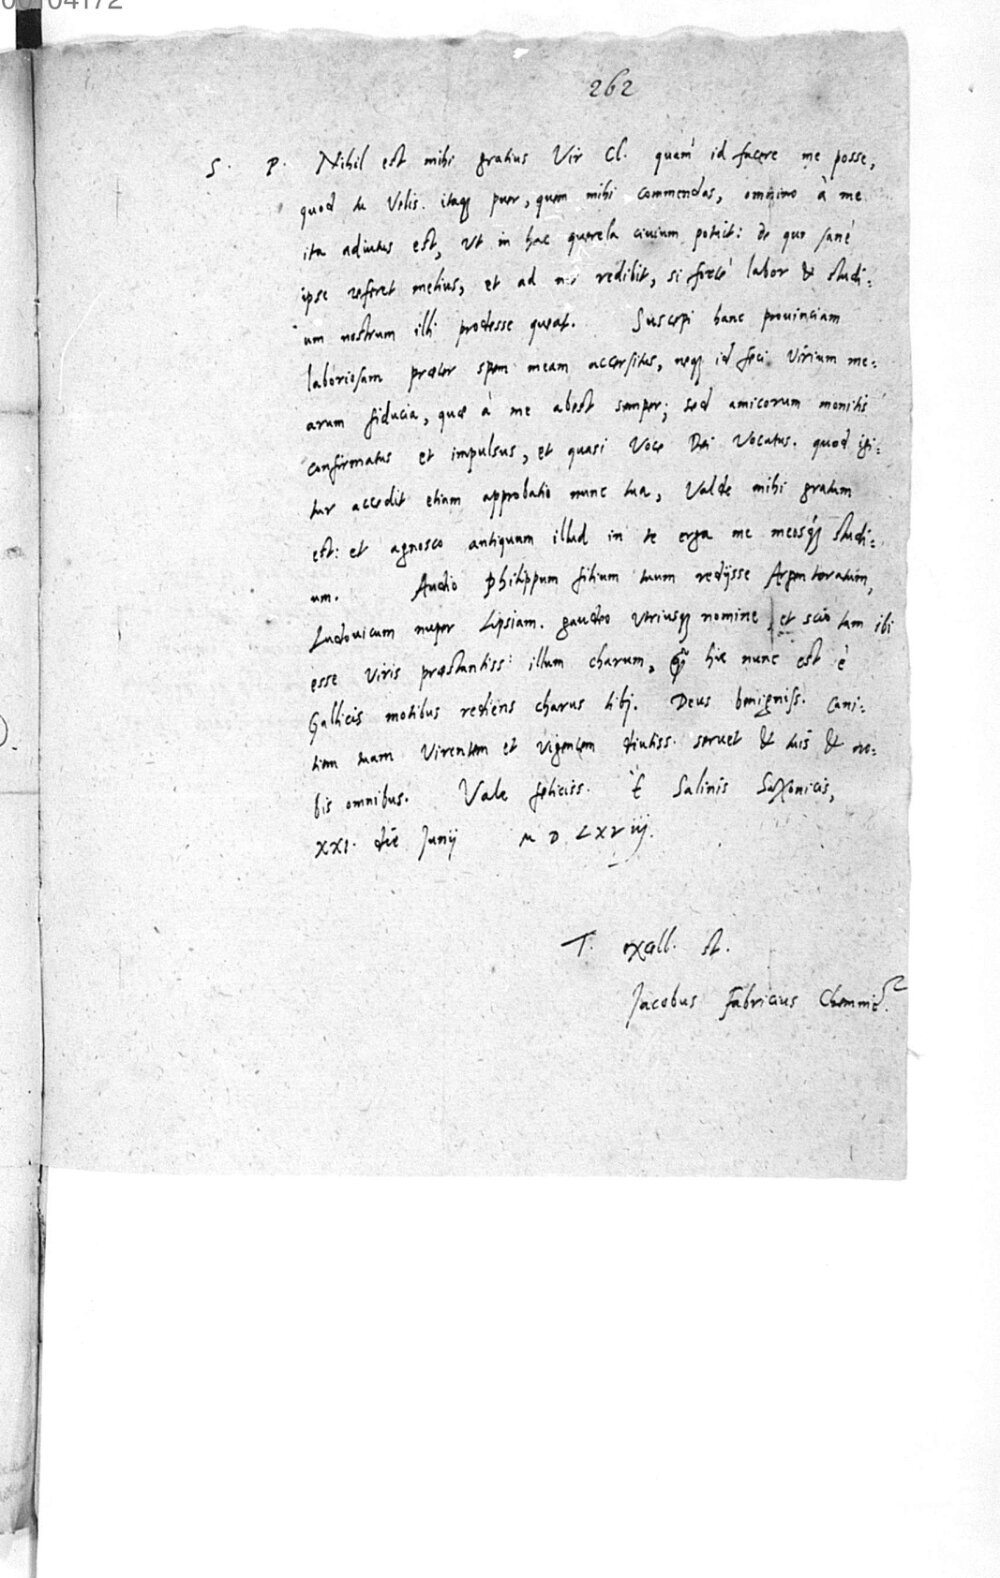 00104172
262
S. P. Nihil est mihi gratius Vir Cl. quam id facere me posse,
quod tu Velis. itaq puer, quem mihi commendas, omnino à me
ita adiutus est, Vt in hac querela ciuium potuit: de quo sanè
ipse referet melius, et ad me redibit, si fortè labor & studi:
um nostrum illi prodesse queat. Suscepi hanc prouinciam
laboriosam præter spem meam accersitus, neq id feci Virium me:
arum fiducia, quæ à me abest semper; sed amicorum monitis
confirmatus et impulsus, et quasi Voce Dei Vocatus. quod igi:
tur accedit etiam approbatio nunc tua, Valde mihi gratum
est: et agnosco antiquum illud in te erga me meosq studi:
um. Audio Philippum filium tuum redijsse Argentoratum,
Ludouicum nuper Lipsiam. gaudeo Vtriusq nomine, et scio tam ibi
esse Viris præstantiss: illum charum, hic nunc est è
Gallicis motibus rediens charus tibj. Deus benigniss. cani:
tiem tuam Virentem et Vigentem diutiss. seruet & tuis & no:
bis omnibus. Vale feliciss. E Salinis Saxonicis,
XXI. die Junij M D LXViij.
T. excell. st.
Jacobus Fabricius Chemnic.